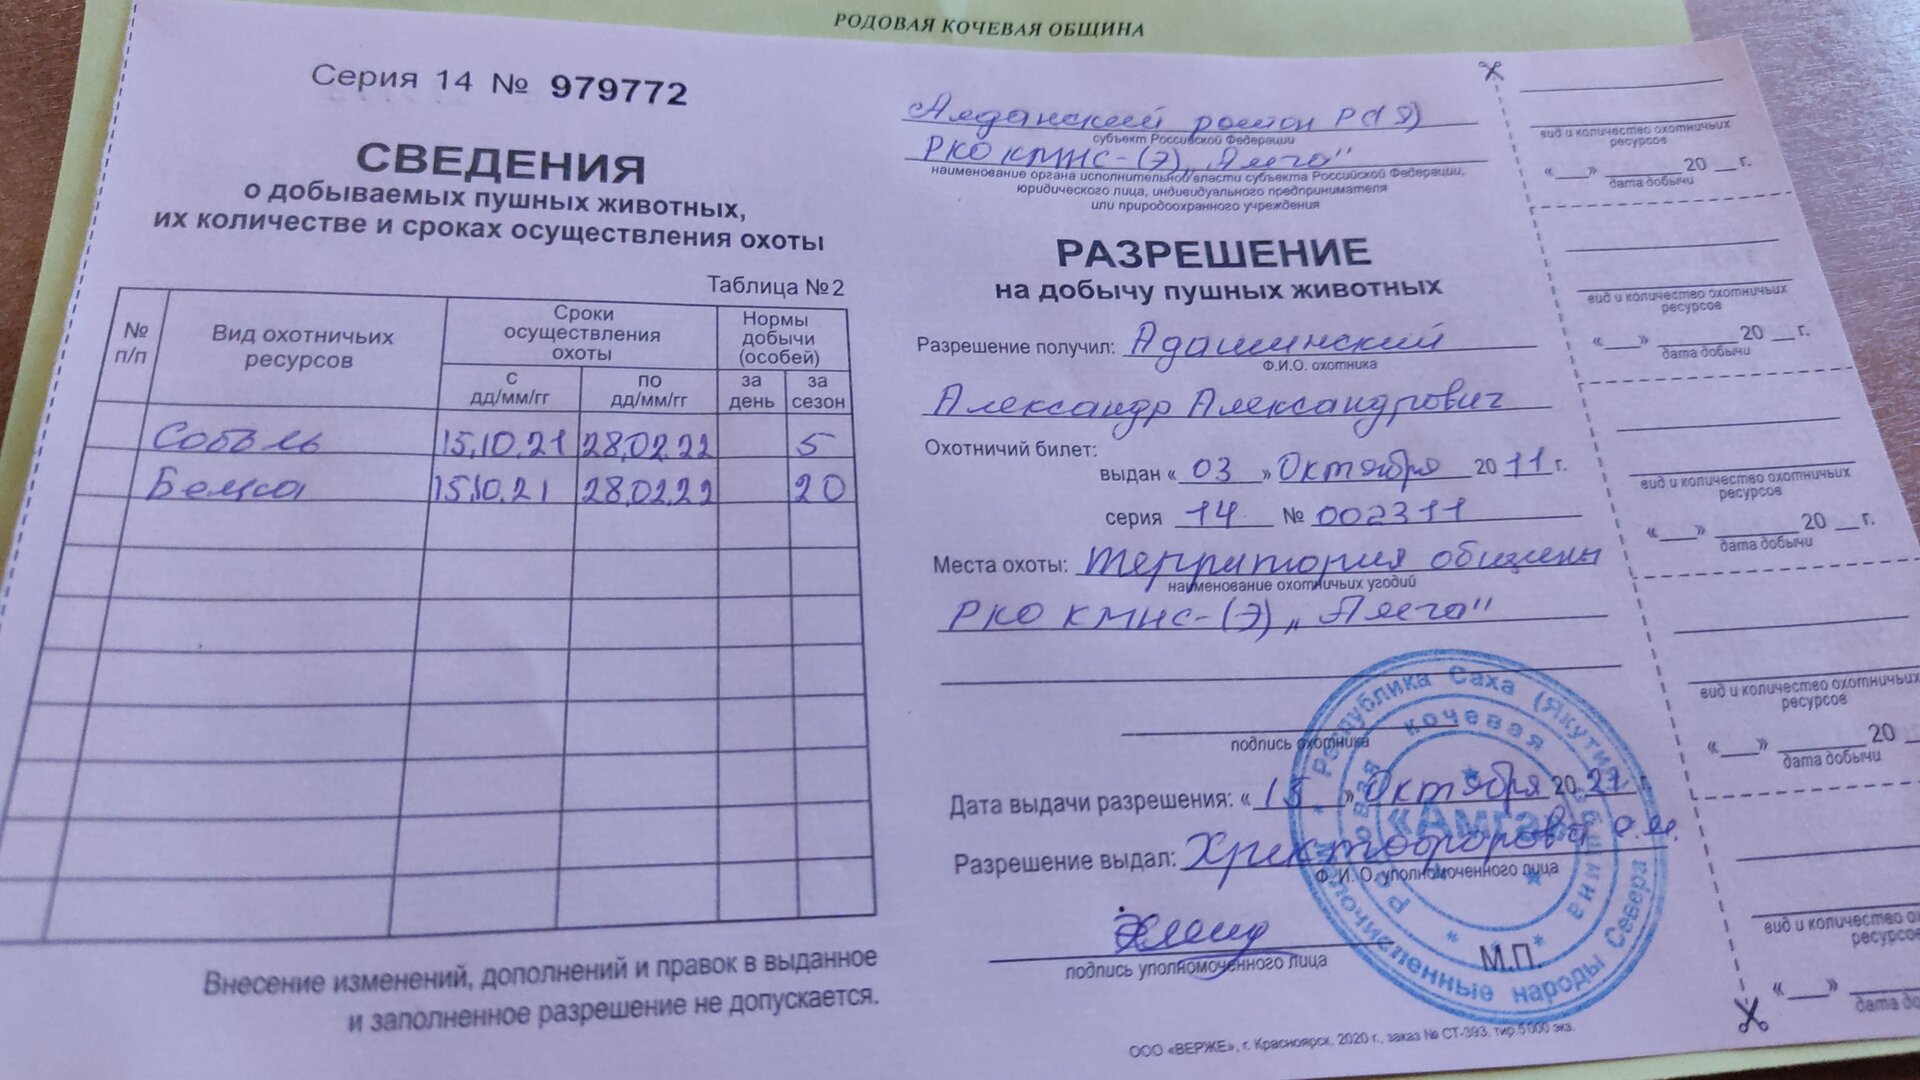 РОДОВАЯ КОЧЕВАЯ ОБЩИНА
Серия 14 № 979772
СВЕДЕНИЯ
о добываемых пушных животных,
их количестве и сроках осуществления охоты
Таблица №2
№ п/п
Вид охотничьих ресурсов
Сроки осуществления охоты
Нормы добычи (особей)
с дд/мм/гг
по дд/мм/гг
за день
за сезон
Соболь 15.10.21 28.02.22 5
Белка 15.10.21 28.02.22 20
Внесение изменений, дополнений и правок в выданное
и заполненное разрешение не допускается.
Алданский район Р(Я)
субъект Российской Федерации
РКО КМНС-(Э) „Амга"
наименование органа исполнительной власти субъекта Российской Федерации,
юридического лица, индивидуального предпринимателя
или природоохранного учреждения
РАЗРЕШЕНИЕ
на добычу пушных животных
Разрешение получил: Адашинский
Ф.И.О. охотника
Александр Александрович
Охотничий билет:
выдан «03» Октября 2011 г.
серия 14 № 002311
Места охоты: территория общины
наименование охотничьих угодий
РКО КМНС-(Э) „Амга"
подпись охотника
Дата выдачи разрешения: «15» Октября 2021 г.
Разрешение выдал: Христофорова
Ф.И.О. уполномоченного лица
подпись уполномоченного лица
М.П.
Республика Саха (Якутия)
Малочисленные народы Севера
Родовая кочевая община
«Амга»
ООО «ВЕРЖЕ», г. Красноярск, 2020 г., заказ № СТ-393, тир.5000 экз.
вид и количество охотничьих
ресурсов
«___» ______ 20 __ г.
дата добычи
вид и количество охотничьих
ресурсов
«___» ______ 20 __ г.
дата добычи
вид и количество охотничьих
ресурсов
«___» ______ 20 __ г.
дата добычи
вид и количество охотничьих
ресурсов
«___» ______ 20
дата добычи
вид и количество
ресурсов
«___»
дата добычи